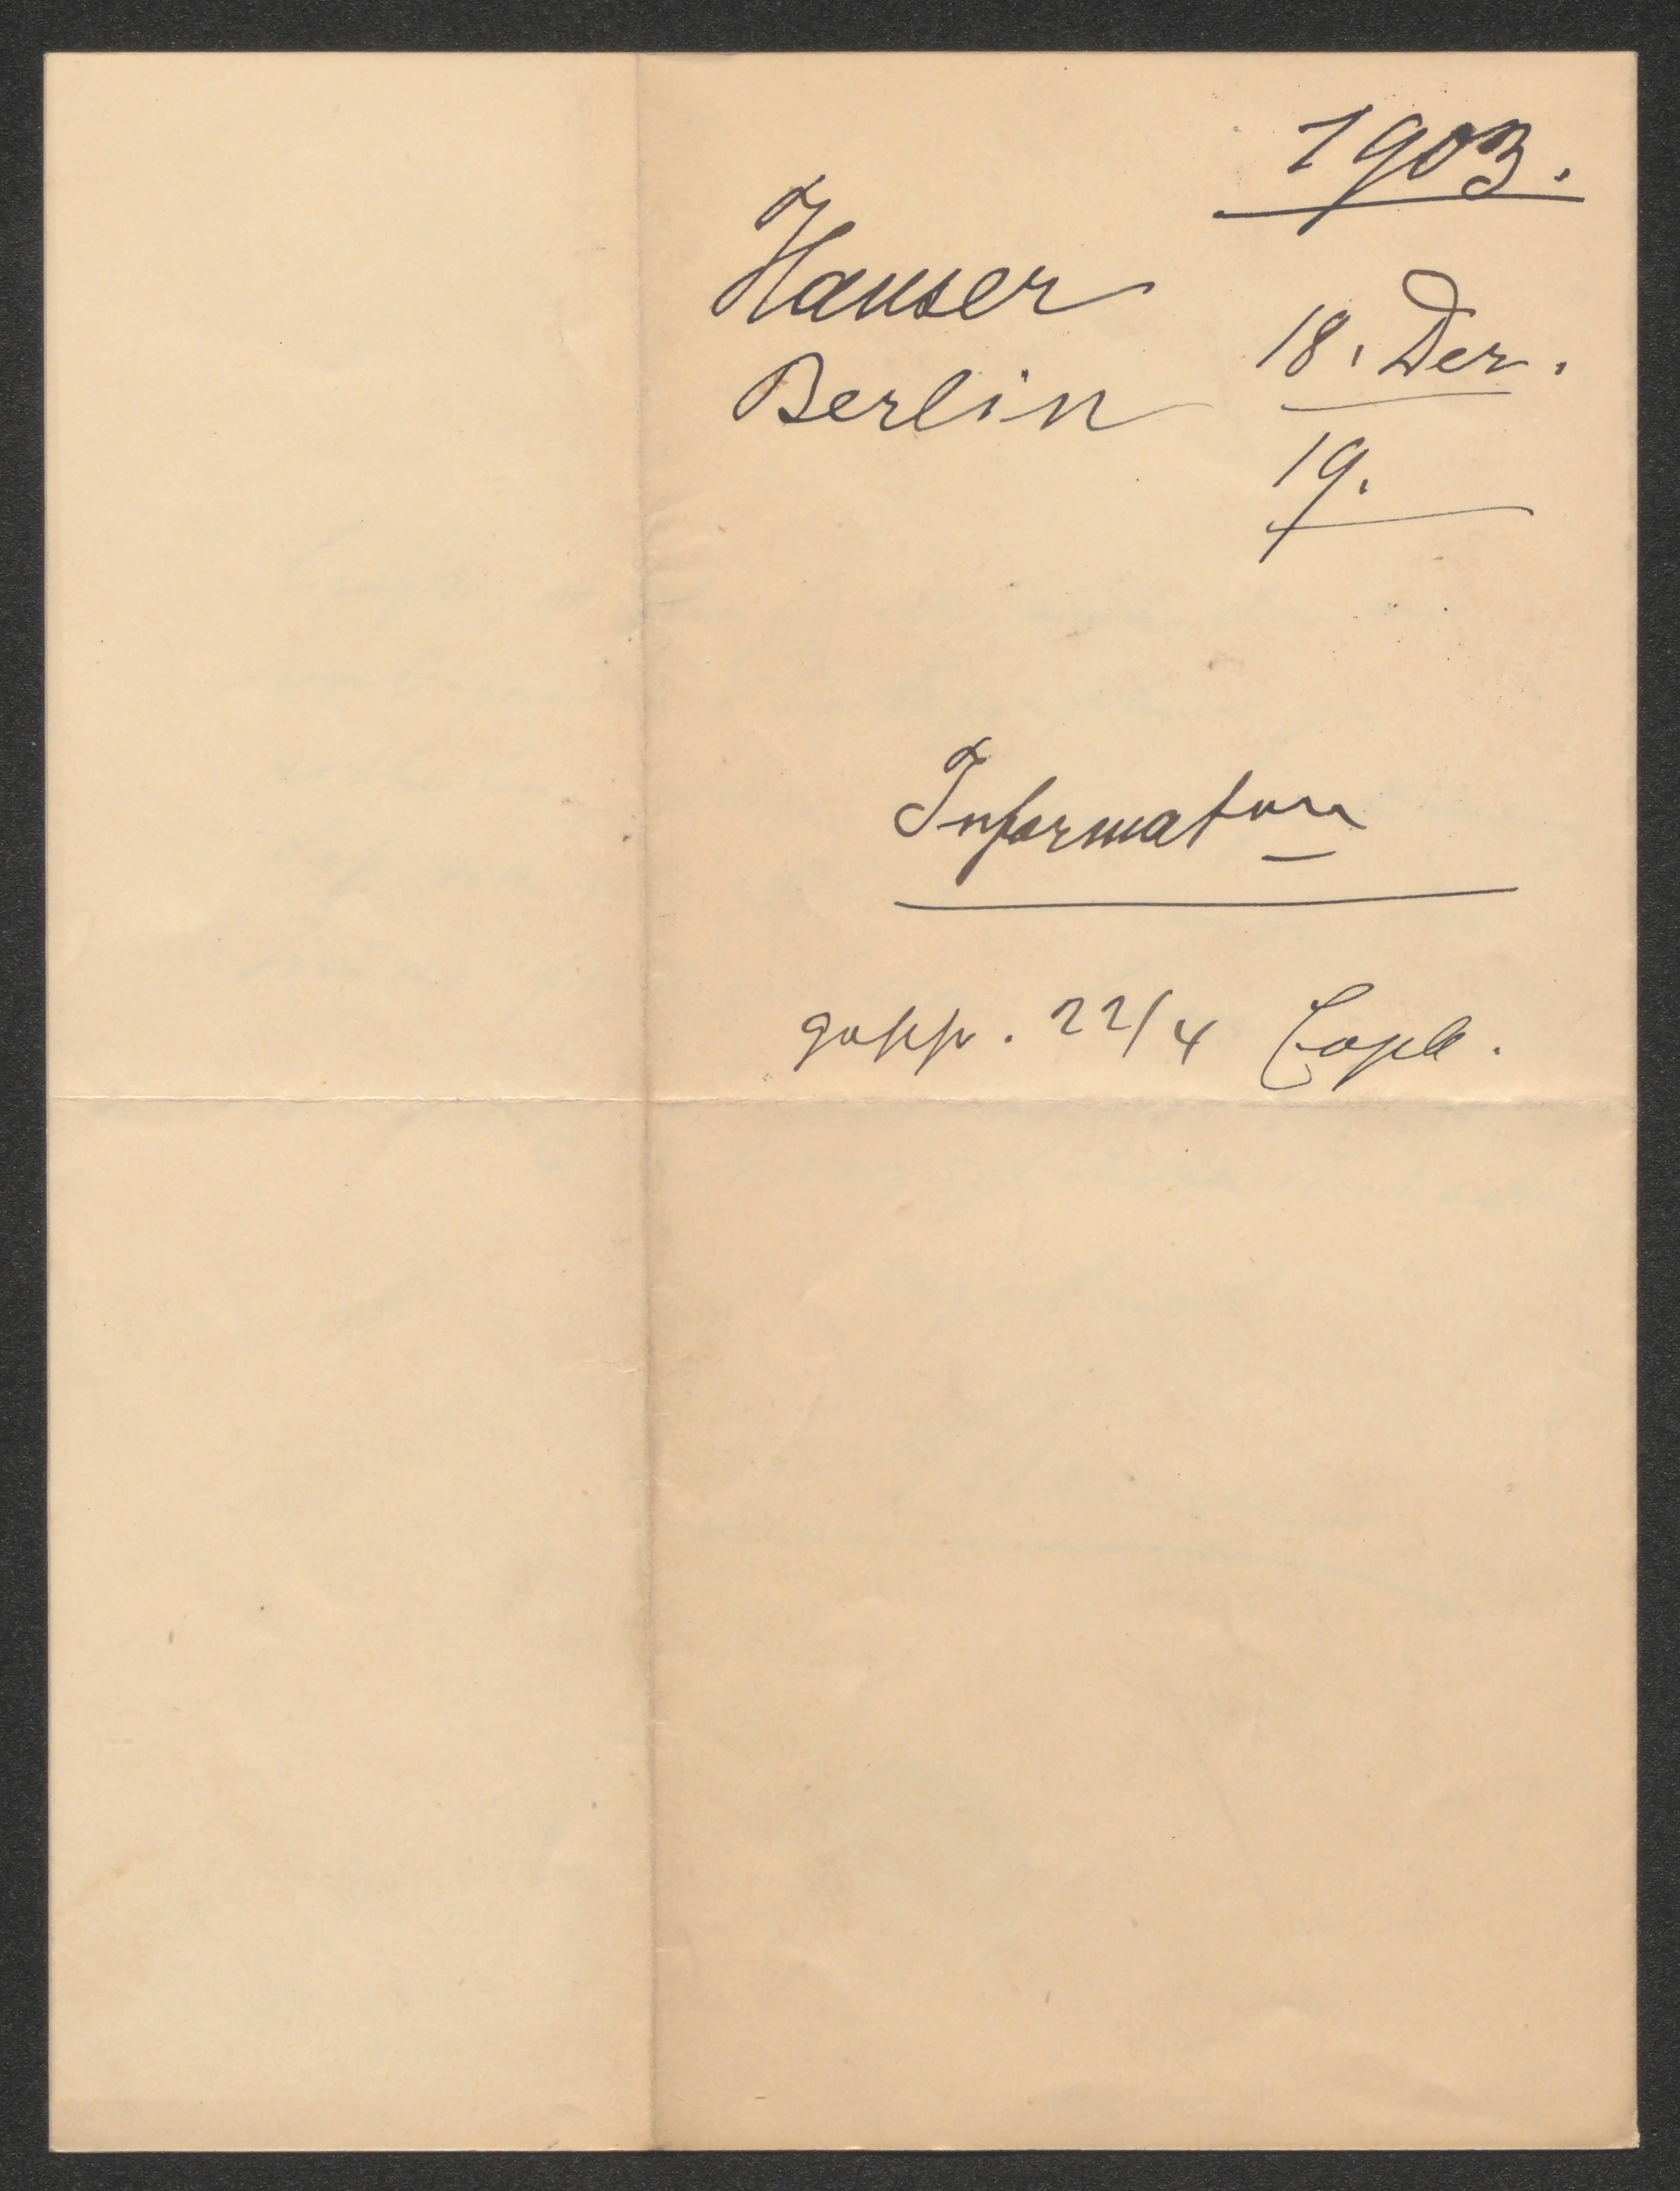 1903.
Hauser
Berlin
18. Dez.
19.
Information
22/4